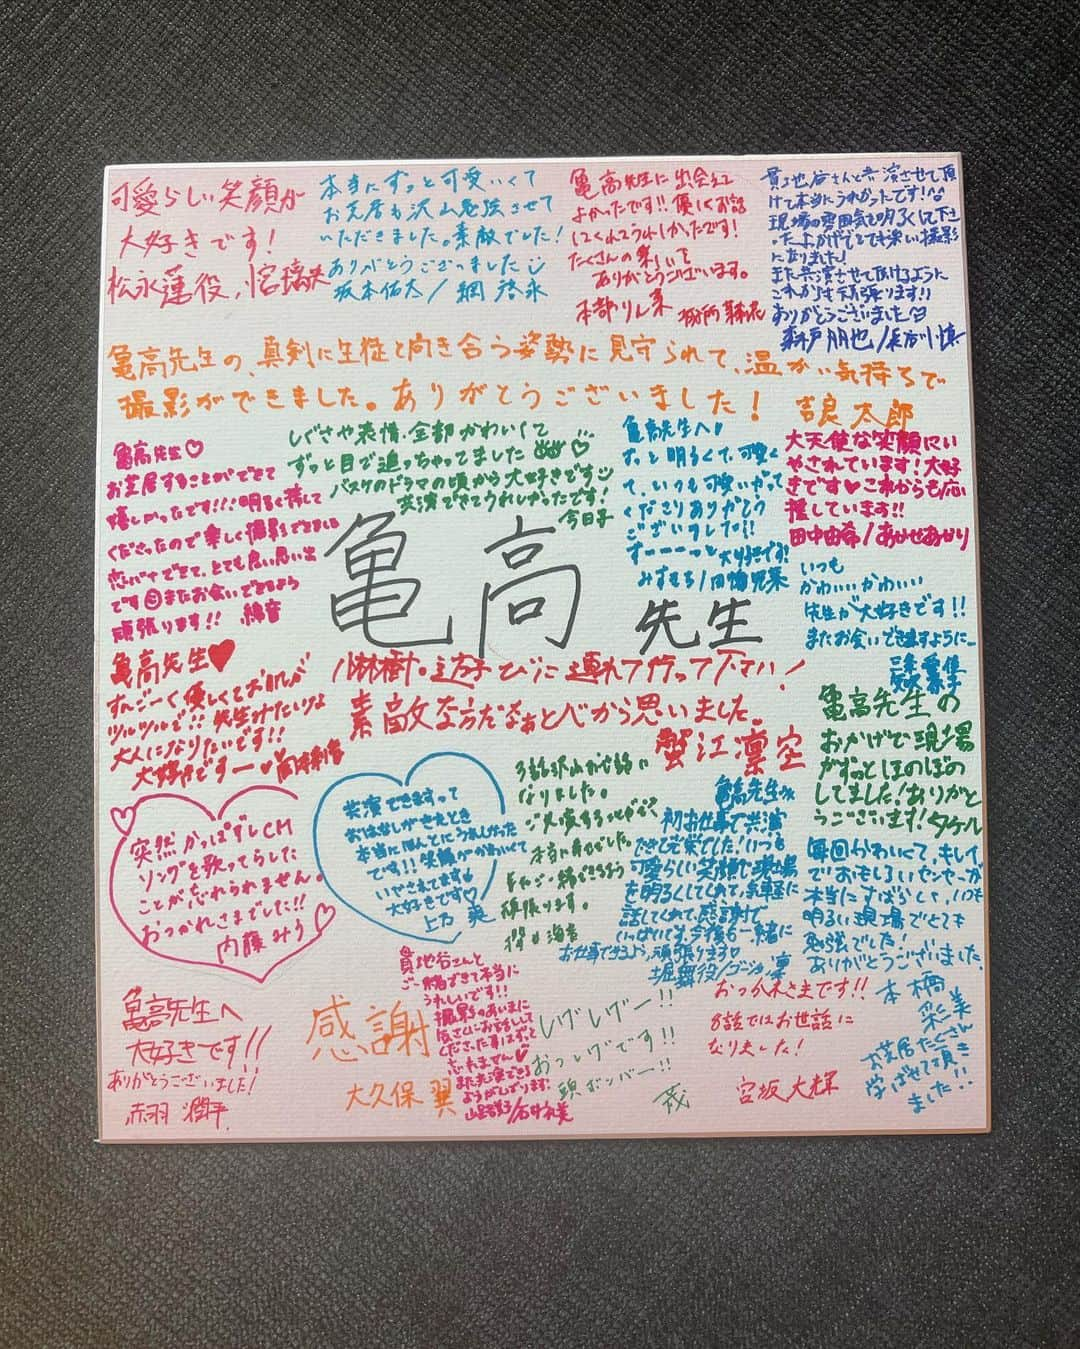 可愛らしい笑顔が
大好きです!
松永蓮役
本当にずっと可愛いくて
お芝居も沢山勉強させて
いただきました。素敵でした!
ありがとうございました
坂本佑太/綱 啓永
亀高先生に出会えて
よかったです!!優しくお話
してくれてうれしかったです!
たくさんの楽しいを
ありがとうございます。
本部りんる
貫地谷さんと共演させて頂
けて本当にうれしかったです!
現場の雰囲気を明るくして下さ
ったおかげでとても楽しい撮影
になりました!
また共演させて頂けるように
これからも頑張ります!!
ありがとうございました
森戸朋也/長谷川慎
亀高先生の、真剣に生徒と向き合う姿勢に見守られて、温かい気持ちで
撮影ができました。ありがとうございました! 吉良太郎
亀高先生♡
お芝居することができて
嬉しかったです!!!明るく接して
くださったので楽しく撮影できました
恋バナできて、とても良い思い出
です またお会いできるよう
頑張ります!! 綿音
しぐさや表情、全部かわいくて
ずっと目で追っちゃってました
バスケのドラマの頃から大好きです
共演できてうれしかったです!
今日子
亀高先生へ
ずっと明るくて、可愛く
て、いつも可愛いがって
くださりありがとう
ございました!!
すーーーっと大好きです!
大天使な笑顔にい
やされています!大好
きです♥これからも応
援しています!!
田中由希/あかせあかり
いつも
かわいいかわいい
先生が大好きです!!
またお会いできますように
亀高
先生
亀高先生♥
すんごーく優しくてお肌が
ツルツルで!!先生みたいな
大人になりたいです!!
大好きですー♥
連れて行って下さい!
素敵な方だなぁと心から思いました。
蟹江凛空
亀高先生の
おかげで現場
がずっとほのぼの
してました!ありがと
うございます!タケル
突然かっぱずしCM
ソングを歌ってらした
ことが忘れられません。
おつかれさまでした!!
内藤みう
共演できますって
おはなしがきたとき
本当にほんとにうれしかった
です!!笑顔がかわいくて
いやされてます
大好きです♡
上乃 美
8話沢山お世話に
なりました。
ご一緒することができて
本当に幸せでした。
またご一緒できるよう
頑張ります。
亀高先生へ
初お仕事で共演
できて光栄でした!いつも
可愛らしい笑顔で現場
を明るくしてくれて、気軽に
話してくれて、感謝で
いっぱいです。今後も一緒に
お仕事できるよう、頑張ります♡
堀舞役/
毎回かわいくて、キレイ
でおもしろいセンセーが
本当にすばらしく、いつも
明るい現場でとても
勉強でした!
ありがとうございました
亀高先生へ
大好きです!!
ありがとうございました!
赤羽 潤平
感謝
大久保 翼
貫地谷さんと
ご一緒できて本当に
うれしいです!!
撮影のあいまに
たくさんお話して
くださった事はずっと
忘れません♥
また共演できる
ようがんばります!
しげしげー!!
おっしげです!!
頭ボンバー!!
茂
おつかれさまです!!
8話ではお世話に
なりました!
宮坂大輝
本橋
彩美
お芝居たくさん
学ばせて頂き
ました!!